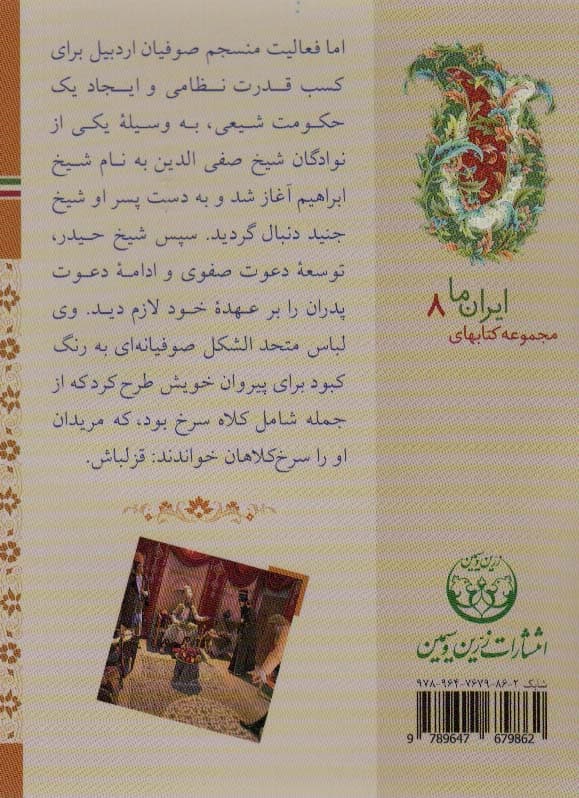 اما فعالیت منسجم صوفیان اردبیل برای
کسب قدرت نظامی و ایجاد یک
حکومت شیعی، به وسیلهٔ یکی از
نوادگان شیخ صفی الدین به نام شیخ
ابراهیم آغاز شد و به دست پسر او شیخ
جنید دنبال گردید. سپس شیخ حیدر،
توسعهٔ دعوت صفوی و ادامهٔ دعوت
پدران را بر عهدهٔ خود لازم دید. وی
لباس متحد الشکل صوفیانه‌ای به رنگ
کبود برای پیروان خویش طرح کرد که از
جمله شامل کلاه سرخ بود، که مریدان
او را سرخ‌کلاهان خواندند: قزلباش.
ایران ما ۸
مجموعه کتابهای
زرین و سیمین
انتشارات زرین و سیمین
شابک ۲-۸۶-۷۶۷۹-۹۶۴-۹۷۸
9 789647 679862